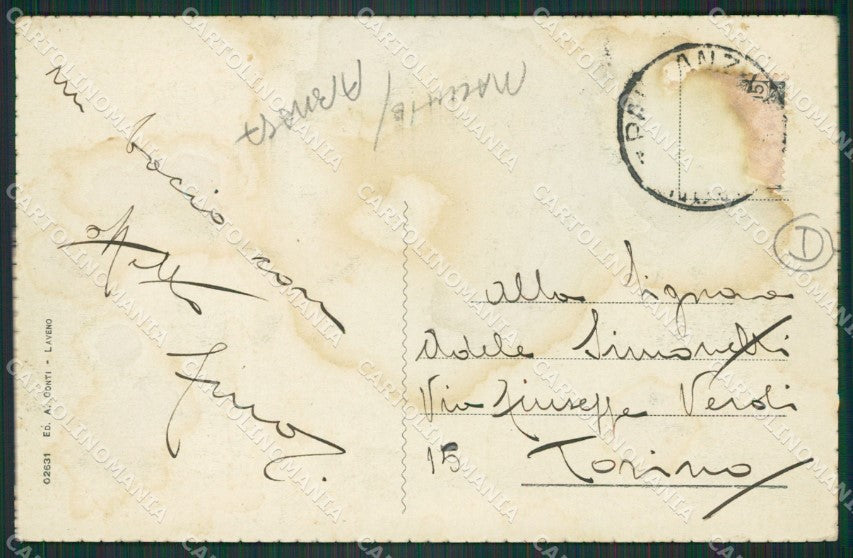 un bacio con
affetto
Alla Signora
Adele Simonetti
Via Giuseppe Verdi
15 Torino
PALLANZA
02631 ED. A. CONTI - LAVENO
D
CARTOLINOMANIA